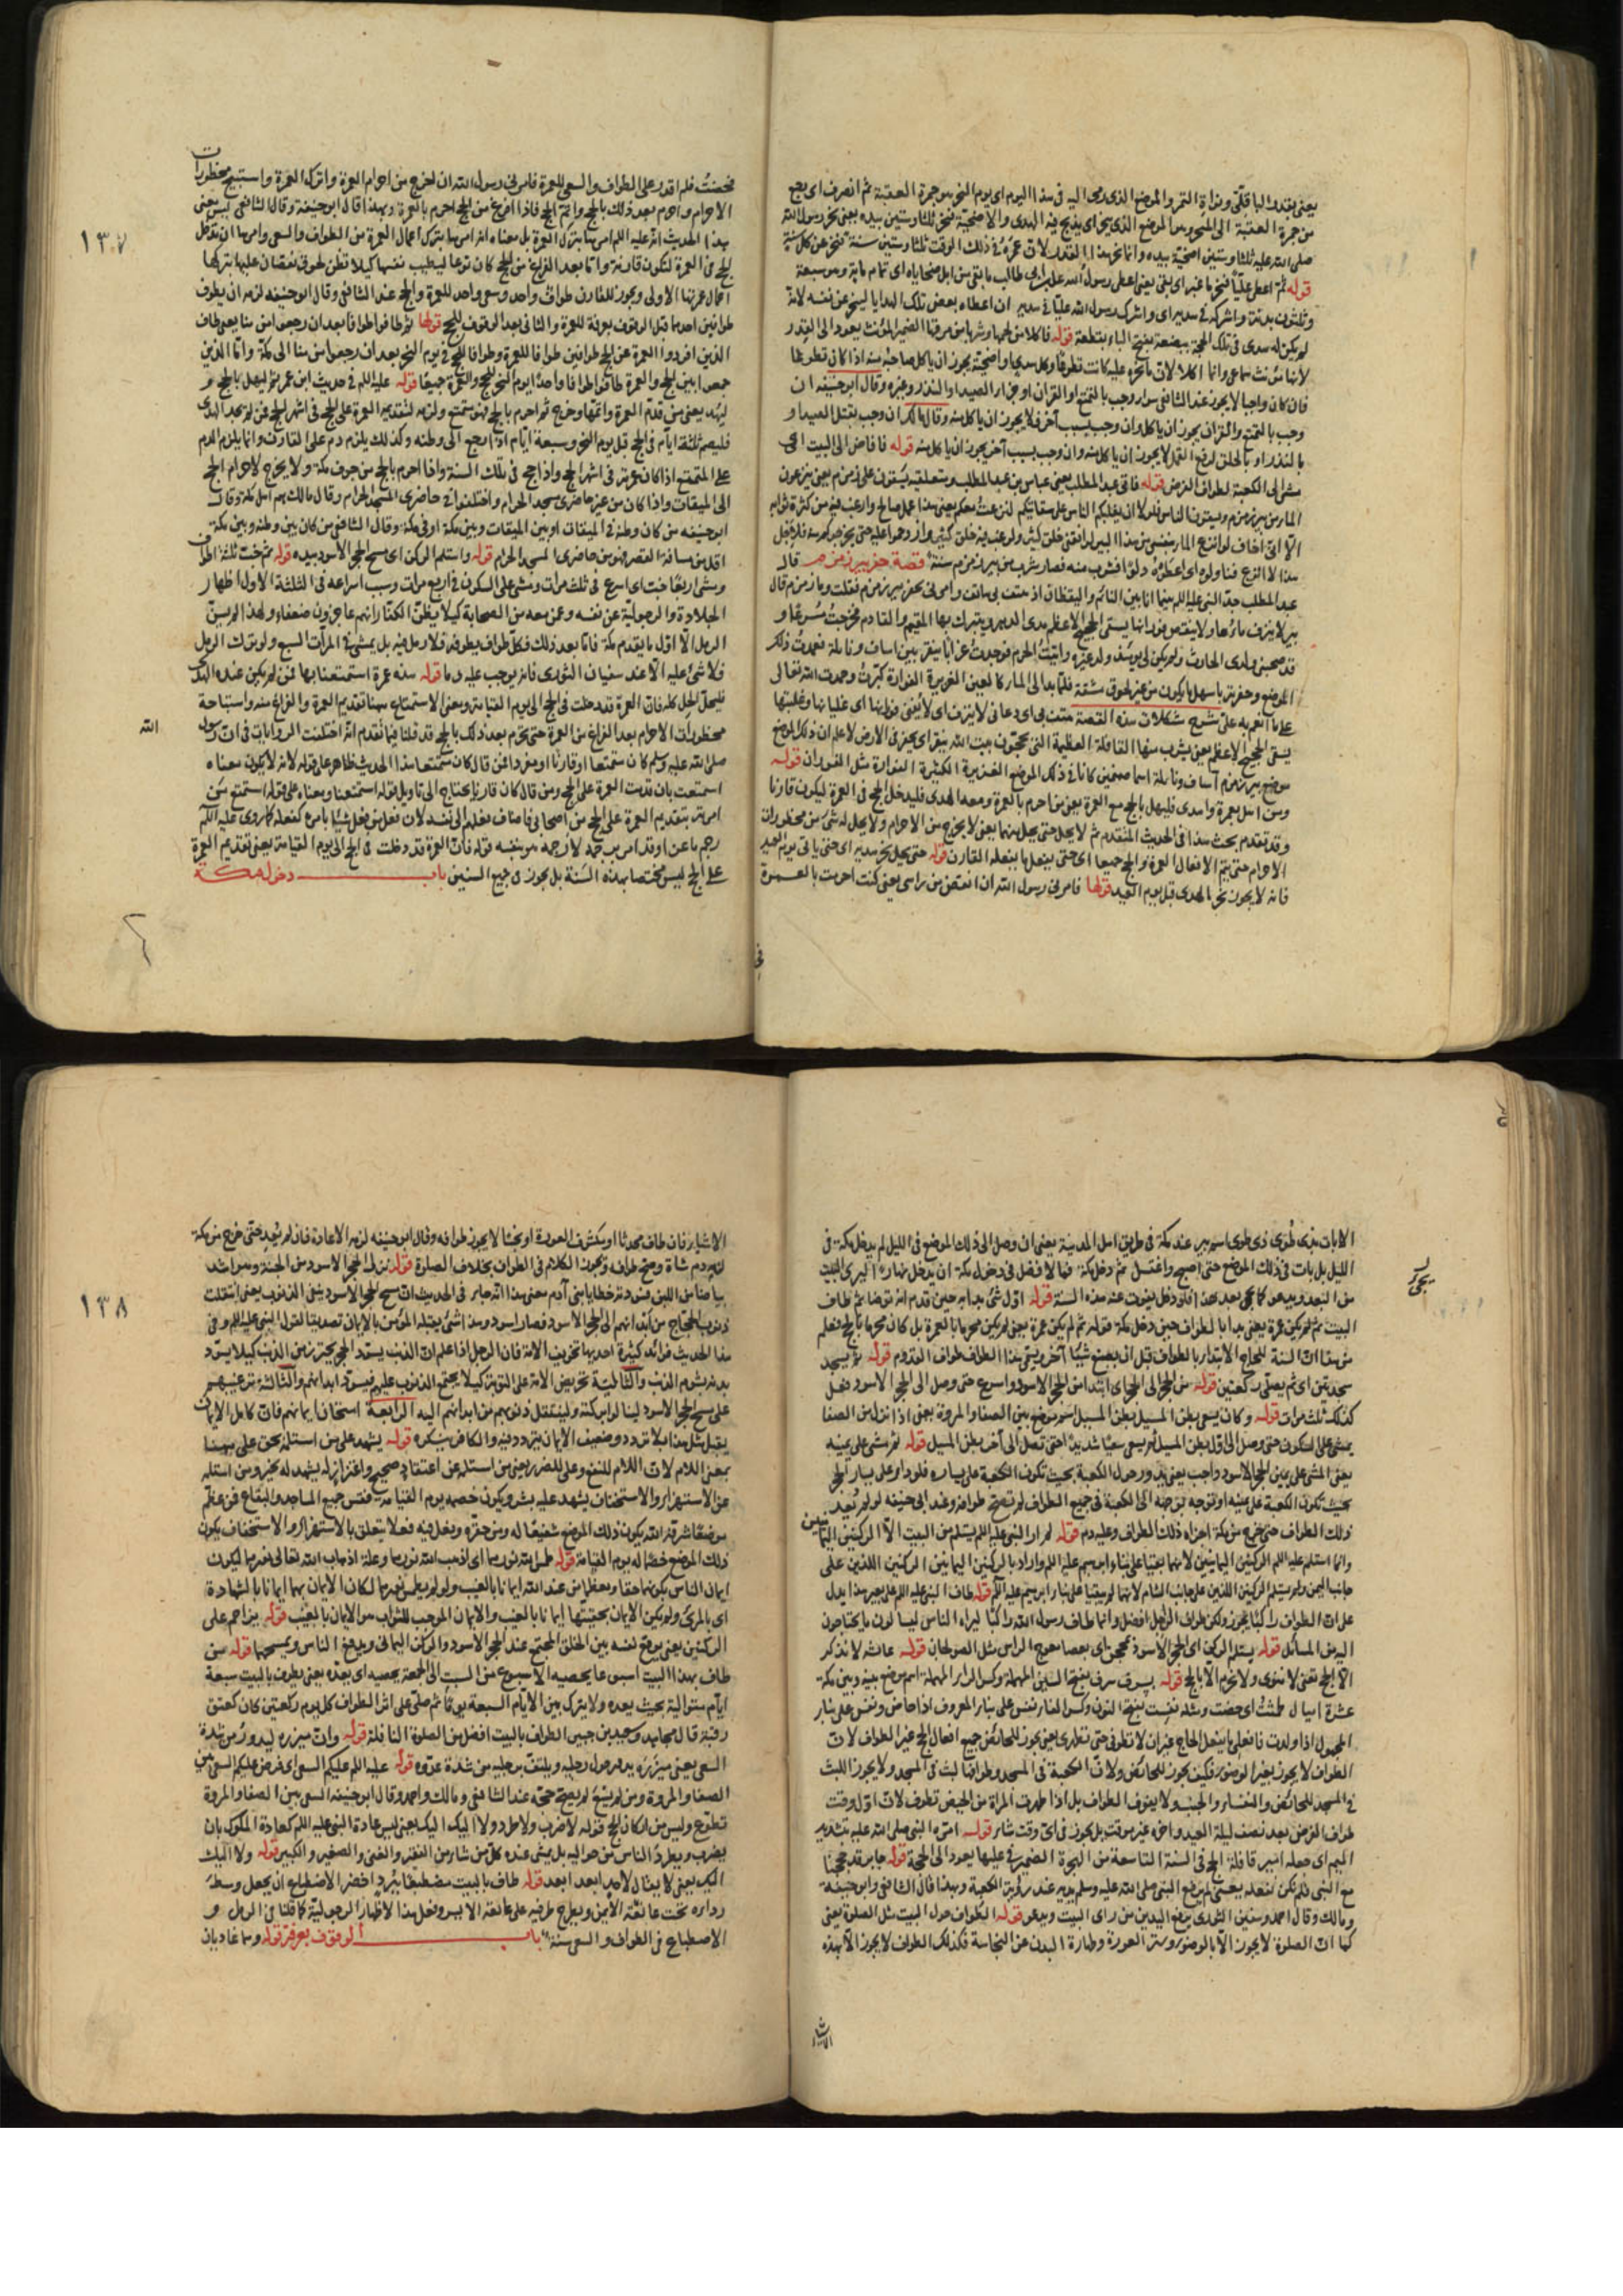 يعنى بقدر الباقلى ونواة التمر والموضع الذى رمى اليه فى هذا اليوم اى يوم النحر هو جمرة العقبة ثم انصرف اى رجع
من جمرة العقبة الى المنحر وهو الموضع الذى ينحر اى يذبح فيه الهدى والاضحية فنحر ثلثا وستين بيده يعنى نحر رسول الله
صلى الله عليه ثلثا وستين اضحية بيده وانما نحر هذا القدر لان عمره فى ذلك الوقت ثلثا وستين سنة فنحر عن كل سنة
قوله ثم اعطى عليا فنحر ما غبر اى بقى يعنى اعطى رسول الله على بن ابى طالب ما بقى من ابل ضحاياه اى تمام ماية وهو سبعة
وثلثون بدنة واشركه فى هديه اى واشرك رسول الله عليا فى هديه ان اعطاه بعض تلك الهدايا لينحر عن نفسه لانه
لم يكن له هدى فى تلك الحجة ببضعة بفتح الباء بقطعة قوله فاكلا من لحمها وشربا من مرقها الضمير المؤنث يعود الى القدر
لانها مؤنث سماعى وانما اكلا لان ما نحره عليه كانت تطوعا وكل هدى او اضحية يجوز ان ياكل صاحبه منه اذا كانى تطوعا
فان كان واجبا لا يجوز عند الشافعى سواء وجب بالتمتع او القران او جزاء الصيد او النذر وغيره وقال ابو حنيفه ان
وجب بالتمتع والقران يجوز ان ياكل وان وجب بسبب آخر فلا يجوز ان ياكل منه وقال مالك ان وجب بقتل الصيد او
بالنذر او بالحلق لدفع القمل لا يجوز ان ياكل منه وان وجب بسبب آخر يجوز ان ياكل منه قوله فافاض الى البيت اى
مشى الى الكعبة لطواف الفرض قوله فاتى عبد المطلب يعنى عباس بن عبد المطلب ومتعلقيه يسقون على زمزم يعنى ينزعون
الماء من بير زمزم ويسقون الناس فلولا ان يغلبكم الناس على سقايتكم لنزعت معكم يعنى هذا عمل صالح وارغب فيه من كثرة ثوابه
الا انى اخاف لو انزع الماء بنفسى من هذا البير لوافقنى خلق كثير ولرغب فيه خلق كثير
هذا لا انزع فناولوه اى اعطوه دلوا فشرب منه فصار شرب من بير زمزم سنة قصة حفر بير زمزم قال
عبد المطلب جد النبى عليه اللم بينما انا بين النائم واليقظان اذ هتف بى هاتف وامرنى بحفر بير زمزم فقلت وما زمزم قال
بير لا ينزف ماؤها ولا ينقص من فورانها يسقى الحجيج الاعظم مدى الدهر ويتبرك بها المقيم والقادم فخرجت مسرعا و
قد صحبنى ولدى الحارث ولم يكن لى يومئذ ولد غيره واتيت الحرم فوجدت غرابا ينقر بين اساف ونايلة فعمدت ذلك
الموضع وحفرته باسهل ما يكون من غير لحوق مشقة فلما بدا الى الماء كالعين الغزيرة الفوارة كبرت وحمدت الله تعالى
على ما انعم به على شرح مشكلات هذه القصة هتف بى اى دعانى لا ينزف اى لا يفنى فورانها اى غليانها وغلبتها
يسقى الحجيج الاعظم يعنى يشرب منها القافلة العظيمة التى يحجون بيت الله ينقر اى يحفر فى الارض لاعلم ان ذلك الموضع
موضع بير زمزم آساف ونايلة اسما صنمين كانا فى ذلك الموضع الغزيرة الكثيرة الفوارة مثل الفوران قوله
ومن اهل بعمرة واهدى فليهل بالحج مع العمرة يعنى من احرم بالعمرة ومعه الهدى فليدخل الحج فى العمرة ليكون قارنا
وقد تقدم بحث هذا فى الحديث المتقدم ثم لا يحل حتى يحل منهما يعنى لا يخرج من الاحرام ولا يحل له شئ من محظورات
الاحرام حتى يتم الافعال العمرة والحج جميعا اى حتى يفعل ما يفعله القارن قوله حتى يحل بنحر هديه اى حتى ياتى يوم العيد
فانه لا يجوز نحر الهدى قبل يوم العيد قولها فامرنى رسول الله ان انقض من راسى يعنى كنت احرمت بالعمرة
فحضت فلم اقدر على الطواف والسعى للعمرة فامرنى رسول الله ان اخرج من احرام العمرة واترك العمرة واستبيح محظورات
الاحرام واحرم بعد ذلك بالحج واتم الحج فاذا افرغ من الحج احرم بالعمرة وبهذا قال ابو حنيفة وقال الشافعى ليس معنى
هذا الحديث انه عليه اللم امرها بترك العمرة بل معناه انه امرها بترك اعمال العمرة من الطواف والسعى وامرها ان تدخل
الحج فى العمرة لتكون قارنة واما بعد الفراغ من الحج كان نوعا لتطييب نفسها كيلا تظن لحوق نقصان عليها بتركها
اعمال عمرتها الاولى ويجوز للقارن طواف واحد وسعى واحد للعمرة والحج عند الشافعى وقال ابو حنيفه لزمه ان يطوف
طوافين احدهما قبل الوقوف بعرفة للعمرة والثانى بعد الوقوف للحج قولها ثم طافوا طوافا بعد ان رجعوا من منا يعنى طاف
الذين افردوا العمرة عن الحج طوافين طوافا للعمرة وطوافا للحج فى يوم النحر بعد ان رجعوا من منا الى مكة واما الذين
جمعوا بين الحج والعمرة طافوا طوافا واحدا يوم النحر للحج والعمرة جميعا قوله عليه اللم فى حديث ابن عمر ثم ليهل بالحج و
ليهد يعنى من قدم العمرة واتمها وخرج ثم احرم بالحج فهو متمتع ولزمه لتقديمه العمرة على الحج فى اشهر الحج فمن لم يجد الهدى
فليصم ثلثة ايام فى الحج قبل يوم النحر وسبعة ايام اذا رجع الى وطنه وكذلك يلزم دم على القارن وانما يلزم الدم
على المتمتع اذا كان عمرته فى اشهر الحج واذا حج فى تلك السنة واذا احرم بالحج من جوف مكة ولا يخرج لاحرام الحج
الى الميقات واذا كان من غير حاضرى مسجد الحرام واختلفوا فى حاضرى المسجد الحرام وقال مالك هم اهل مكة وقال
ابو حنيفه من كان وطنه فى الميقات او بين الميقات وبين مكة او فى مكة وقال الشافعى من كان بين وطنه وبين مكة
اقل من مسافة القصر فهو من حاضرى المسجد الحرام قوله واستلم الركن اى مسح الحجر الاسود بيده قوله ثم خب ثلثة اطواف
ومشى اربعا خب اى اسرع فى ثلث مرات ومشى على السكون فى اربع مرات وسبب اسراعه فى الثلثة الاول اظهار
الجلادة والرجولية عن نفسه وعمن معه من الصحابة كيلا يظن الكفار انهم عاجزون ضعفاء ولهذا لم يسن
الرمل الا اول ما يقدم مكة فاما بعد ذلك فكل طواف يطوفه فلا رمل فيه بل يمشى فى المرات السبع ولو ترك الرمل
فلا شئ عليه الا عند سفيان الثورى فانه يوجب عليه دما قوله هذه عمرة استمتعنا بها فمن لم يكن عنده الهدى
فليحل الحل كله فان العمرة قد دخلت فى الحج الى يوم القيامة ومعنى الاستمتاع ههنا تقديم العمرة والفراغ منه واستباحة
محظورات الاحرام بعد الفراغ من العمرة حتى يحرم بعد ذلك بالحج قد قلنا فيما تقدم انه اختلفت الروايات فى ان رسول
الله
صلى الله عليه وسلم كان متمتعا او قارنا او مفردا فمن قال كان متمتعا هذا الحديث ظاهر على قوله لانه لا يكون معناه
استمتعت بان قدمت العمرة على الحج ومن قال كان قارنا يحتاج الى تاويل قوله استمتعنا ومعناه على قوله استمتع من
امرته بتقديم العمرة على الحج من اصحابى فاضاف فعلهم الى نفسه لان فعل من يفعل شيئا بامره كفعله كما روى عليه اللم
رجم ماعزا وقد امر برجمه لا رجمه هو بنفسه قوله فان العمرة قد دخلت فى الحج الى يوم القيامة يعنى تقديم العمرة
على الحج ليس مختصا بهذه السنة بل يجوز فى جميع السنين باب دخول مكة
١٣٧
الابات بذى طوى ذى طوى اسم بير عند مكة فى طريق اهل المدينة يعنى ان وصل الى ذلك الموضع فى الليل لم يدخل مكة فى
الليل بل بات فى ذلك الموضع حتى اصبح واغتسل ثم دخل مكة فالافضل فى دخول مكة ان يدخل نهارا ليرى البيت
من البعد ويدعو كما يجئ بعد هذا فلو دخل يفوت عنه هذه السنة قوله اول شئ بدا به حين قدم انه توضا ثم طاف
البيت ثم لم يكن عمرة يعنى بدا بالطواف حين دخل مكة قوله ثم لم يكن عمرة يعنى لم يكن محرما بالعمرة بل كان محرما بالحج فعلم
من هذا ان السنة للحاج الابتداء بالطواف قبل ان يصنع شيئا آخر ويسمى هذا الطواف طواف القدوم قوله ثم يسجد
سجدتين اى ثم يصلى ركعتين قوله من الحجر الى الحجر اى ابتدا من الحجر الاسود واسرع حتى وصل الى الحجر الاسود فعل
كذلك ثلث مرات قوله وكان يسعى بطن المسيل بطن المسيل اسم موضع بين الصفا والمروة يعنى اذا نزل من الصفا
يمشى على السكون حتى وصل الى اول بطن المسيل ثم يسعى سعيا شديدا حتى تصل الى آخر بطن المسيل قوله ثم مشى على يمينه
يعنى المشى على يمين الحجر الاسود واجب يعنى يدور حول الكعبة بحيث تكون الكعبة على يساره فلو دار على يسار الحجر
بحيث تكون الكعبة على يمينه او توجه بوجهه الى الكعبة فى جميع الطواف لم تصح طوافه وعند ابى حنيفه لو لم يعد
ذلك الطواف حتى خرج من مكة اجزاه ذلك الطواف وعليه دم قوله لم ار النبى عليه اللم يستلم من البيت الا الركنين اليمانيين
وانما استلم عليه اللم الركنين اليمانيين لانهما بقيا على بناء ابرهيم عليه اللم واراد بالركنين اليمانيين الركنين اللذين على
جانب اليمن ولم يستلم الركنين اللذين على جانب الشام لانهما لم يبقيا على بناء ابرهيم عليه اللم قوله طاف النبى عليه اللم على بعير هذا يدل
على ان الطواف راكبا يجوز ولكن طواف الراجل افضل وانما طاف رسول الله راكبا ليراه الناس ليسالون ما يحتاجون
اليه من المسائل قوله يستلم الركن اى الحجر الاسود بمحجن اى بعصا معوج الراس مثل الصولجان قوله عائشه لا نذكر
الا الحج تعنى لا ننوى ولا نحرم الا بالحج قوله بسرف سرف بفتح السين المهملة وكسر الراء المهملة اسم موضع بينه وبين مكة
عشرة اميال طمثت اى حضت ومثله نفست بفتح النون وكسر الفاء نفس على بناء المعروف اذا حاض ونفس على بناء
المجهول اذا ولدت فافعلى ما يفعل الحاج غير ان لا تطوفى حتى تطهرى يعنى يجوز للحائض جميع افعال الحج غير الطواف لان
الطواف لا يجوز بغير الوضوء فكيف يجوز للحائض ولان الكعبة فى المسجد وطوافها لبث فى المسجد ولا يجوز اللبث
فى المسجد للحائض والنفساء والجنب ولا يفوت الطواف بل اذا طهرت المراة من الحيض تطوف لان اول وقت
طواف الفرض بعد نصف ليلة العيد واخره غير موقت بل يجوز فى اى وقت شاء قوله امره النبى صلى الله عليه بتشديد
الميم اى جعله امير قافلة الحج فى السنة التاسعة من الهجرة الضمير فى عليها يعود الى الحجة قوله جابر قد حججنا
مع النبى فلم نكن نفعله يعنى لم يرفع النبى صلى الله عليه وسلم يديه عند رؤية الكعبة وبهذا قال الشافعى وابو حنيفه
ومالك وقال احمد وسفين الثورى يرفع اليدين من راى البيت ويدعو قوله الطواف حول البيت مثل الصلوة يعنى
كما ان الصلوة لا يجوز الا بالوضوء وستر العورة وطهارة البدن عن النجاسة فكذلك الطواف لا يجوز الا بهذه
الاشياء فان طاف محدثا او بكشف العورة او نجسا لا يجوز طوافه وقال ابو حنيفه لزمه الاعادة فان لم يعد حتى خرج من مكة
لزمه دم شاة وصح طوافه ويجوز الكلام فى الطواف بخلاف الصلوة قوله نزل الحجر الاسود من الجنة وهو اشد
بياضا من اللبن فسودته خطايا بنى آدم معنى هذا انه جاء فى الحديث ان مسح الحجر الاسود ينقى الذنوب يعنى انتقلت
ذنوب الحجاج من ابدانهم الى الحجر الاسود فصار اسود وهذا شئ يقبله المؤمن بالايمان تصديقا لقول النبى عليه اللم وفى
هذا الحديث فوائد كثيرة احديها تخويف الامة فان الرجل اذا علم ان الذنب يسود الحجر يحترز من الذنب كيلا يسود
بدنه بشوم الذنب والثانية تحريض الامة على التوبة كيلا يجتمع الذنوب عليهم فيسود ابدانهم والثالثة ترغيبهم
على مسح الحجر الاسود لينالوا بركته ولينتقل ذنوبهم من ابدانهم اليه الرابعة امتحان ايمانهم فان كامل الايمان
يقبل مثل هذا بلا تردد وضعيف الايمان يتردد فيه والكافر ينكره قوله يشهد على من استلمه بحق على ههنا
بمعنى اللام لان اللام للنفع وعلى للضرر يعنى من استلمه عن اعتقاد صحيح واعزاز له يشهد له بخير ومن استلمه
عن الاستهزاء والاستخفاف يشهد عليه بشر ويكون خصمه يوم القيامة فقس جميع المساجد والبقاع فمن عظم
موضعا شرفه الله يكون ذلك الموضع شفيعا له ومن حقره وفعل فيه فعلا يتعلق بالاستهزاء والاستخفاف يكون
ذلك الموضع خصما له يوم القيامة قوله طمس الله نورهما اى اذهب الله نورهما وعلة اذهاب الله تعالى نورهما ليكون
ايمان الناس بكونهما حقا ومعظما من عند الله ايمانا بالغيب ولو لم يطمس نورهما لكان الايمان بهما ايمانا بالشهادة
اى بالمرئى ولم يكن الايمان بحقيتها ايمانا بالغيب والايمان الموجب للثواب هو الايمان بالغيب قوله يزاحم على
الركنين يعنى يوقع نفسه بين الخلق المجتمع عند الحجر الاسود والركن اليمانى ويدفع الناس ويمسحهما قوله من
طاف بهذا البيت اسبوعا يحصيه الاسبوع من السبت الى الجمعة يحصيه اى يعده يعنى يطوف بالبيت سبعة
ايام متوالية بحيث يعده ولا يترك بين الايام السبعة يوما ثم صلى على اثر الطواف كل يوم ركعتين كان كعتق
رقبة قال مجاهد وسعيد بن جبير الطواف بالبيت افضل من الصلوة النافلة قوله وان ميزره ليدور من شدة
السعى يعنى ميزره يدور حول رجليه ويلتف برجليه من شدة عدوه قوله عليه اللم عليكم السعى اى فرض عليكم السعى بين
الصفا والمروة ومن لم يسع لم يصح حجه عند الشافعى ومالك واحمد وقال ابو حنيفه السعى بين الصفا والمروة
تطوع وليس من اركان الحج قوله لا ضرب ولا طرد ولا اليك اليك يعنى ليس عادة النبى عليه اللم كعادة الملوك بان
يضرب ويطرد الناس من حواليه بل يمشى عنده كل من شاء من الفقير والغنى والصغير والكبير قوله ولا اليك
اليك يعنى لا يقال لاحد ابعد ابعد قوله طاف بالبيت مضطبعا ببرد اخضر الاضطباع ان يجعل وسط
رداءه تحت عاتقه الايمن ويطرح طرفيه على عاتقه الايسر وفعل هذا لاظهار الرجولية كما قلنا فى الرمل و
الاضطباع فى الطواف والسعى سنة باب الوقوف بعرفة قوله وهما غاديان
١٣٨